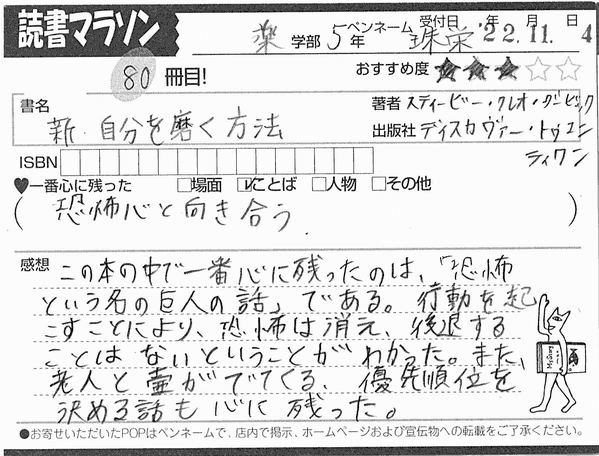 読書マラソン
薬 学部 5年 ペンネーム 珠栄 受付日 '22年 11月 4日
80 冊目!
おすすめ度 ★★★☆☆
書名 新・自分を磨く方法
著者 スティービー・クレオ・ダービック
出版社 ディスカヴァー・トゥエンティワン
ISBN
♥一番心に残った □場面 ☑ことば □人物 □その他
(恐怖心と向き合う.)
感想 この本の中で一番心に残ったのは、「恐怖
という名の巨人の話」である。行動を起
こすことにより、恐怖は消え、後退する
ことはないということがわかった。また、
老人と壷がでてくる、優先順位を
決める話も心に残った。
●お寄せいただいたPOPはペンネームで、店内で掲示、ホームページおよび宣伝物への転載をご了承ください。